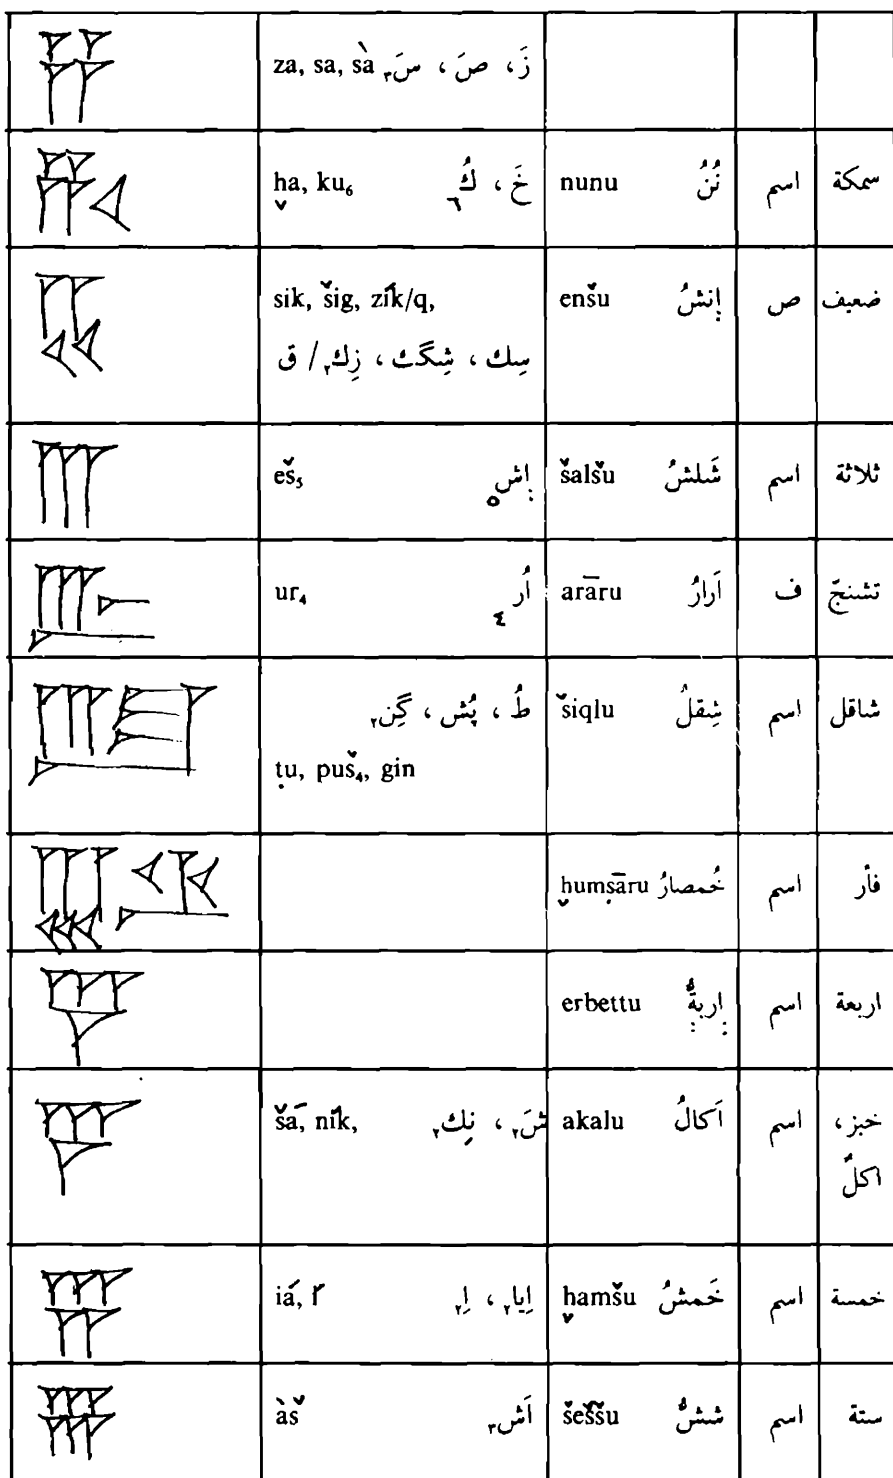 za, sa, sà زَ، صَ، سَ٣
ḫa, ku₆ خَ، كُ٦ nunu نُنُ اسم سمكة
sik, šig, zík/q, enšu إِنشُ ص ضعيف
سِك، شِگ، زِك٢/ ق
eš₅ إش٥ šalšu شَلشُ اسم ثلاثة
ur₄ أُر٤ arāru اَرارُ ف تشنجّ
طُ، پُش، گِن٢ šiqlu شِقلُ اسم شاقل
ṭu, puš₄, gin
ḫumṣāru خُمصارُ اسم فأر
erbettu إربةُ اسم اربعة
šá, ník, شَ٢، نِك٢ akalu اَكالُ اسم خبز،
اكلٌ
iá, í اِيا٢، اِ٢ ḫamšu خَمشُ اسم خمسة
àš اَش٣ šeššu ششُّ اسم ستة